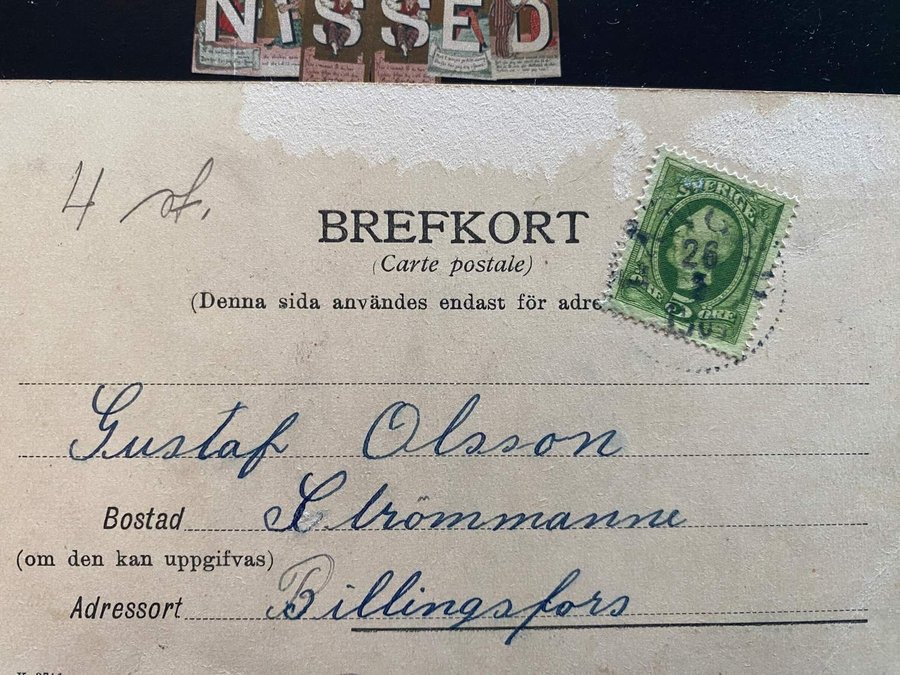 NISSED
4 st.
BREFKORT
(Carte postale)
(Denna sida användes endast för adre
SVERIGE
26
2
5 ÖRE
Gustaf Olsson
Bostad Strömmanne
(om den kan uppgifvas)
Adressort Billingsfors